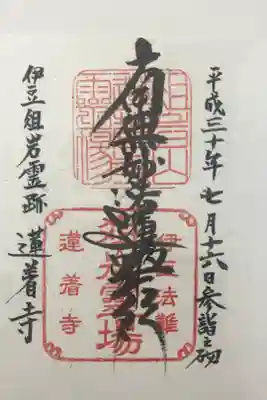 平成三十年七月十六日参詣之砌
南無妙法蓮華経
伊豆法難
俎岩霊場
蓮着寺
伊豆俎岩霊跡
蓮着寺